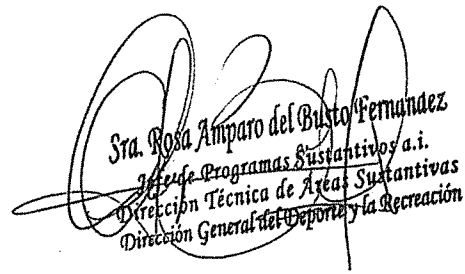 Sra. Rosa Amparo del Busto Fernandez
Jefe de Programas Sustantivos a.i.
Dirección Técnica de Areas Sustantivas
Dirección General del Deporte y la Recreación